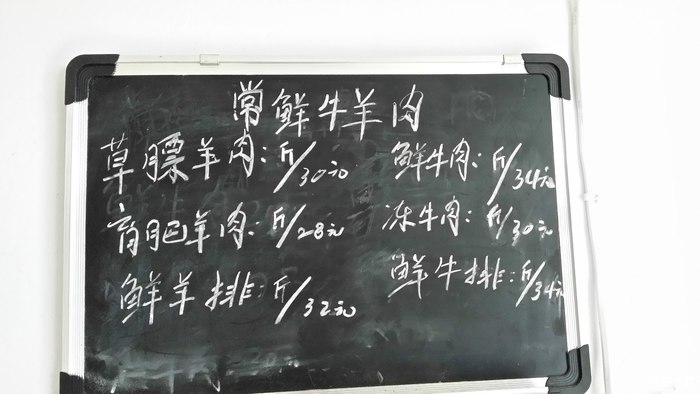 常鲜牛羊肉
草膘羊肉:斤/30元
育肥羊肉:斤/28元
鲜羊排:斤/32元
鲜牛肉:斤/34元
冻牛肉:斤/30元
鲜牛排:斤/34元